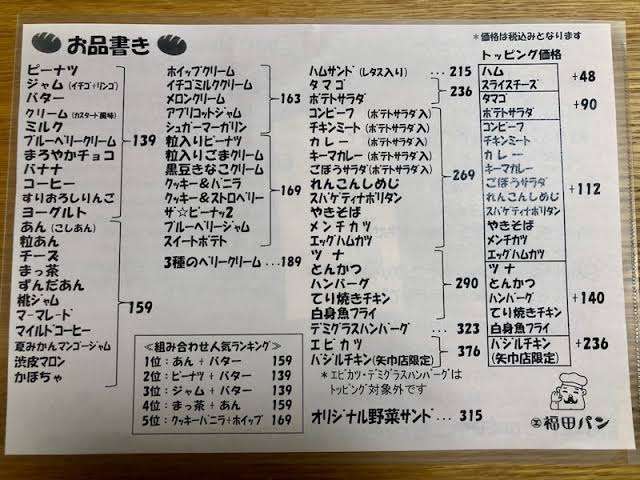 お品書き
*価格は税込みとなります
ピーナツ
ジャム(イチゴ+リンゴ)
バター
クリーム(カスタード風味)
ミルク
ブルーベリークリーム 139
まろやかチョコ
バナナ
コーヒー
すりおろしりんご
ヨーグルト
あん(こしあん)
粒あん
チーズ
まっ茶
ずんだあん
桃ジャム 159
マーマレード
マイルドコーヒー
夏みかんマンゴージャム
渋皮マロン
かぼちゃ
ホイップクリーム
イチゴミルククリーム
メロンクリーム 163
アプリコットジャム
シュガーマーガリン
粒入りピーナツ
粒入りごまクリーム
黒豆きなこクリーム
クッキー&バニラ 169
クッキー&ストロベリー
ザ☆ピーナッ2
ブルーベリージャム
スイートポテト
3種のベリークリーム…189
≪組み合わせ人気ランキング≫
1位:あん+バター 159
2位:ピーナツ+バター 139
3位:ジャム+バター 139
4位:まっ茶+あん 159
5位:クッキーバニラ+ホイップ 169
ハムサンド(レタス入り) …215
タマゴ 236
ポテトサラダ
コンビーフ(ポテトサラダ入)
チキンミート(ポテトサラダ入)
カレー(ポテトサラダ入)
キーマカレー(ポテトサラダ入)
ごぼうサラダ(ポテトサラダ入) 269
れんこんしめじ
スパゲティナポリタン
やきそば
メンチカツ
エッグハムカツ
ツナ
とんかつ
ハンバーグ 290
てり焼きチキン
白身魚フライ
デミグラスハンバーグ … 323
エビカツ 376
バジルチキン(矢巾店限定)
*エビカツ・デミグラスハンバーグは
トッピング対象外です
オリジナル野菜サンド… 315
トッピング価格
ハム +48
スライスチーズ
タマゴ +90
ポテトサラダ
コンビーフ
チキンミート
カレー
キーマカレー
ごぼうサラダ +112
れんこんしめじ
スパゲティナポリタン
やきそば
メンチカツ
エッグハムカツ
ツナ
とんかつ
ハンバーグ +140
てり焼きチキン
白身魚フライ
バジルチキン +236
(矢巾店限定)
福田パン